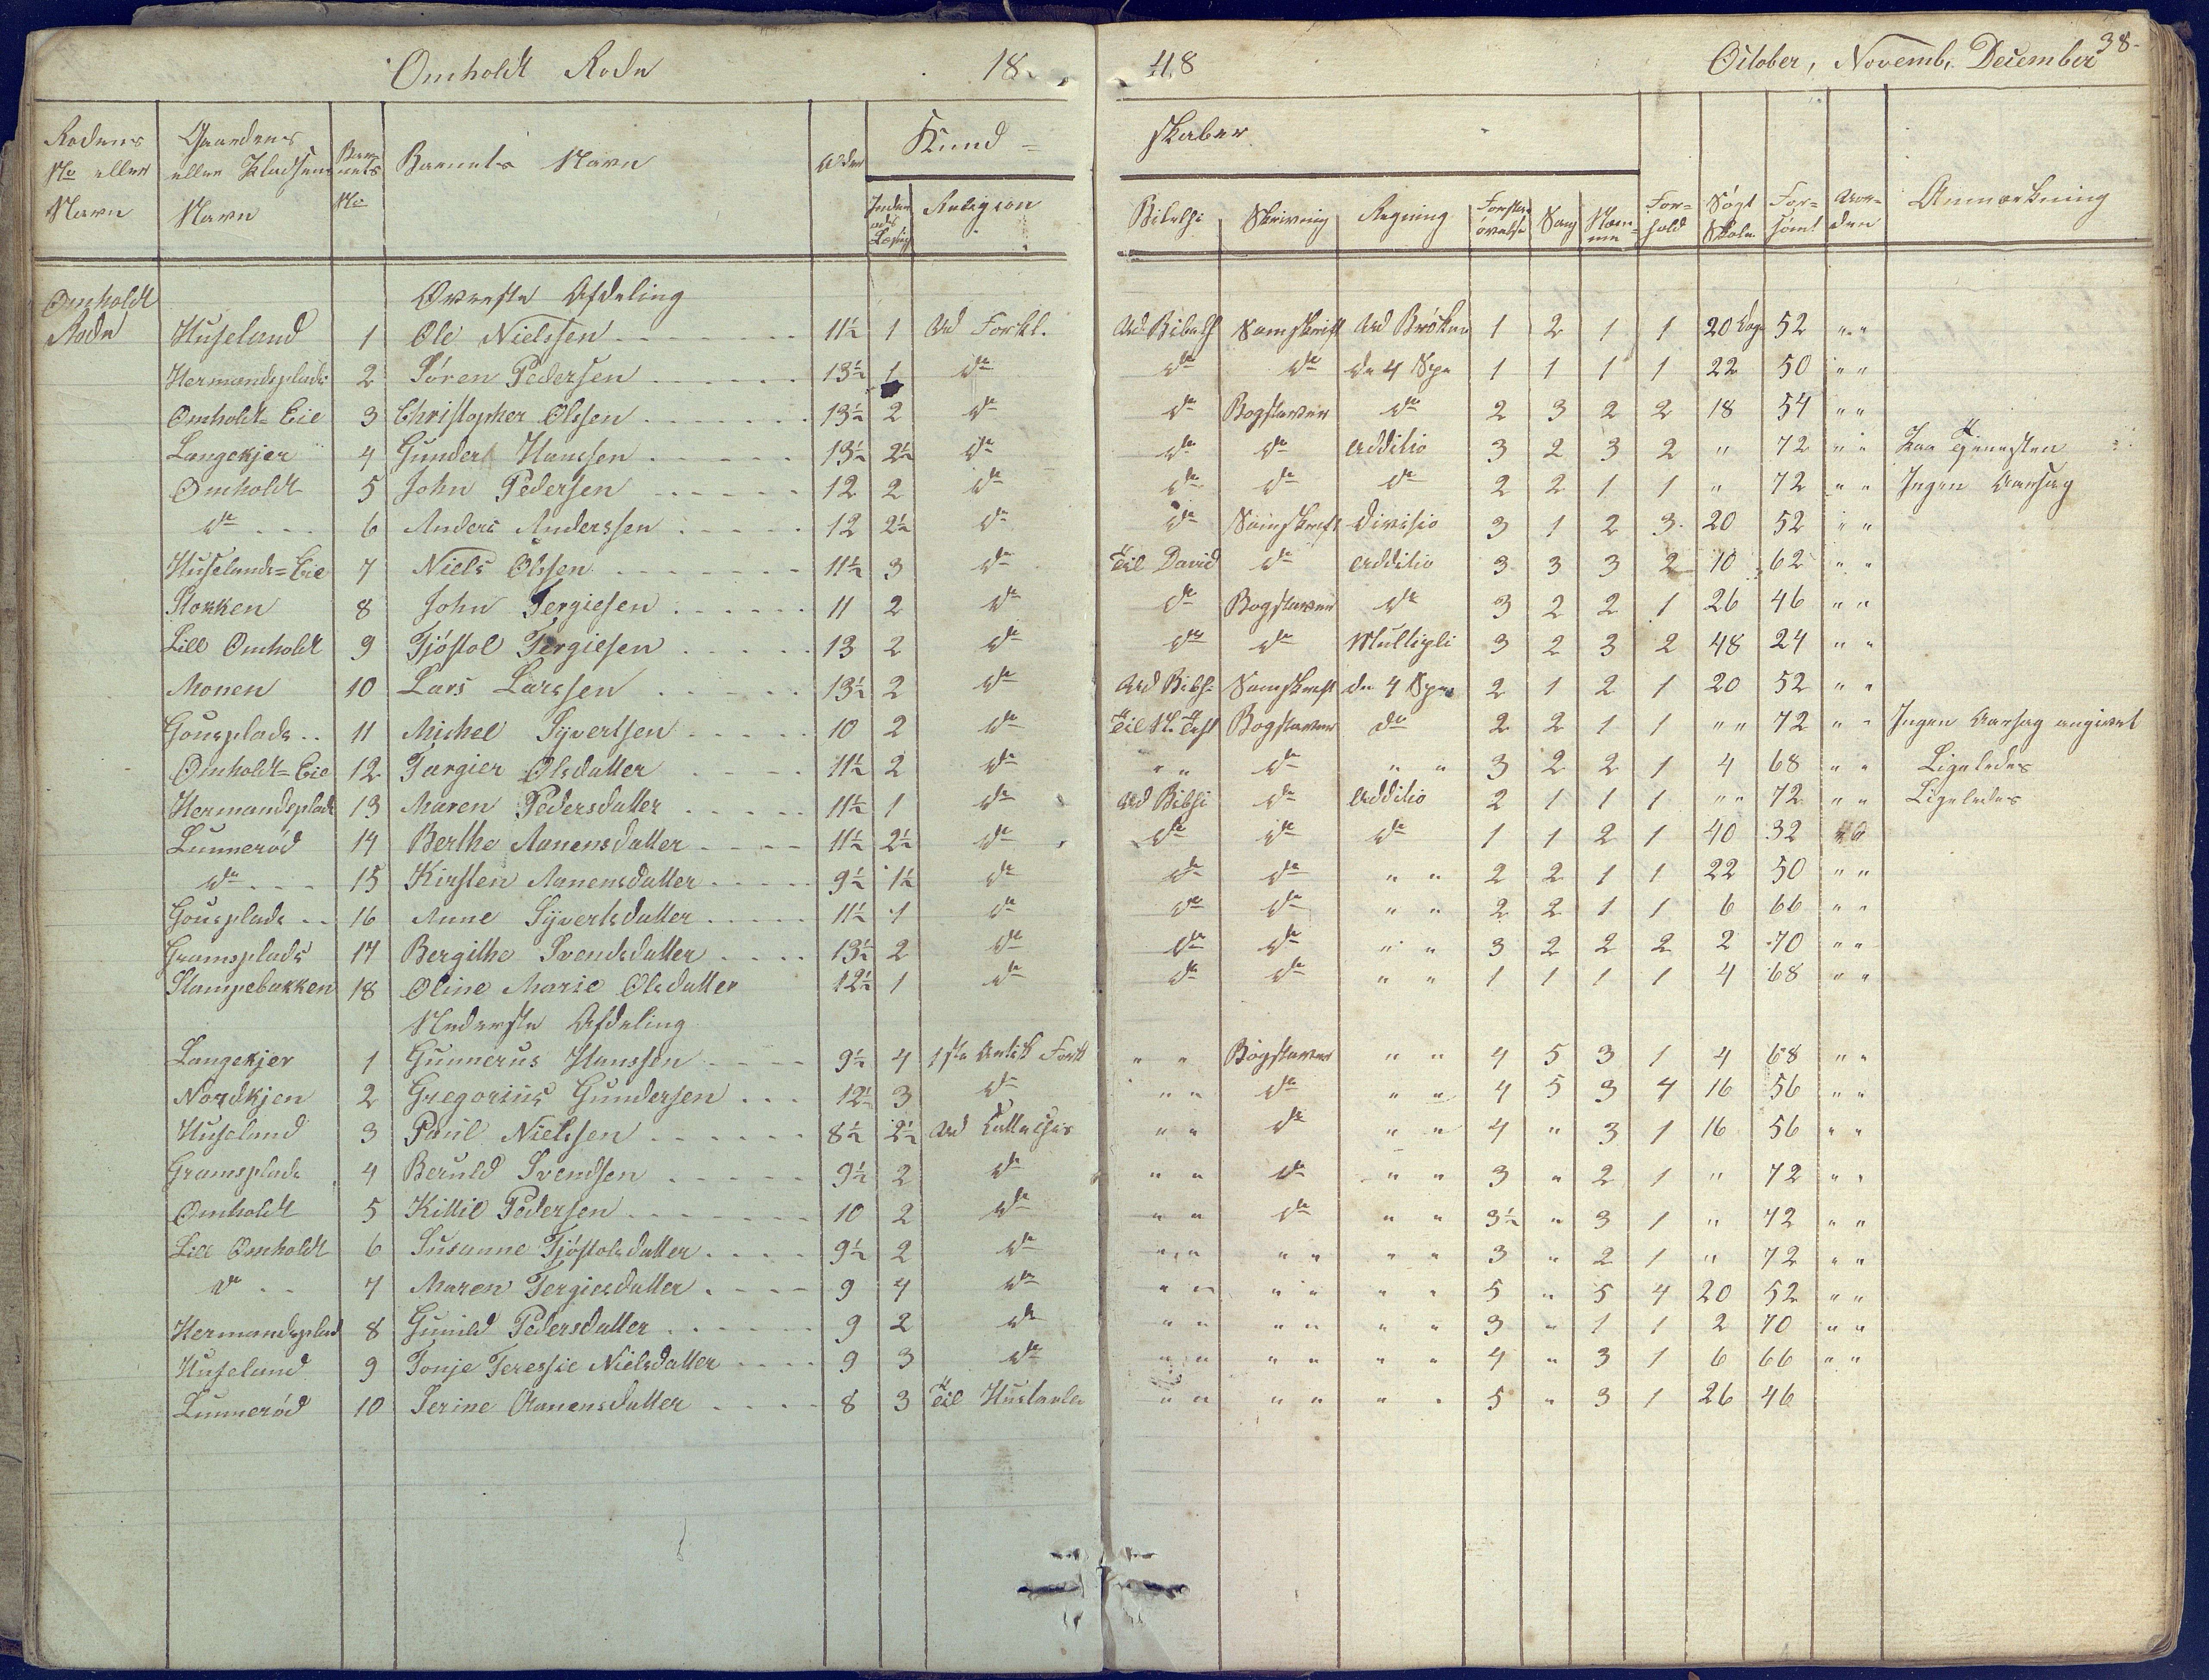 Omholdt Rode 1848 October, Novemb. December 38-
Rodens No eller Navn | Gaardens eller Pladsens Navn | Barnets No | Barnets Navn | Alder | Kundskaber | Forhold | Søgt Skolen | Forsømt | Anmærkning
Indenads Læsning | Religion | Bibelhi | Skrivning | Regning | Forstandsøvelse | Sang | Nemme
Omholdt Rode | Øverste Afdeling
Huseland 1 Ole Nielssen 11½ 1 Ud Forkl. Ud Bibelh Samskrift Ud Brøken 1 2 1 1 20 Dage 52 " "
Hermandsplads 2 Søren Pedersen 13½ 1 do do do de 4 Spe 1 1 1 1 22 50 " "
Omholdt=Eie 3 Christopher Olssen 13½ 2 do do Bogstaver do 2 3 2 2 18 54 " "
Langekjer 4 Gunder Hanssen 13½ 2½ do do do Additio 3 2 3 2 " 72 " " Paa Tjenesten
Omholdt 5 John Pedersen 12 2 do do do do 2 2 1 1 " 72 " " Ingen Aarsag
do 6 Anders Anderssen 12 2½ do do Samskrift Divisio 3 1 2 3 20 52 " "
Huselands=Eie 7 Niels Olssen 11½ 3 do Til David do Additio 3 3 3 2 10 62 " "
Stokken 8 John Tergiesen 11 2 do do Bogstaver do 3 2 2 1 26 46 " "
Lill Omholdt 9 Tjøstol Tergiesen 13 2 do do do Multipli 3 2 3 2 48 24 " "
Monen 10 Lars Larssen 13½ 2 do Ud Bibh Samskrift de 4 Spe 2 1 2 1 20 52 " "
Gousplads 11 Michel Syvertsen 10 2 do Til N. Test Bogstaver do 2 2 1 1 " " 72 " " Ingen Aarsag angivet
Omholdt=Eie 12 Tærgier Olsdatter 11½ 2 do " " do " " 3 2 2 1 4 68 " " Ligeledes
Hermandsplads 13 Maren Pedersdatter 11½ 1 do Ud Bibhi do Additio 2 1 1 1 " " 72 " " Ligeledes
Lunnerød 14 Berthe Aanensdatter 11½ 2½ do do do do 1 1 2 1 40 32 " "
do 15 Kirsten Aanensdatter 9½ 1½ do do do " " 2 2 1 1 22 50 " "
Gousplads 16 Anne Syvertsdatter 11½ 1 do do do " " 2 2 1 1 6 66 " "
Gramsplads 17 Bergithe Svendsdatter 13½ 2 do do do " " 3 2 2 2 2 70 " "
Stampebakken 18 Oline Marie Olsdatter 12½ 1 do do do " " 1 1 1 1 4 68 " "
Nederste Afdeling
Langekjer 1 Gunnerus Hanssen 9½ 4 1ste Artik Fork " " Bogstaver " " 4 5 3 1 4 68 " "
Nordkjen 2 Gregorius Gundersen 12½ 3 do " " do " " 4 5 3 4 16 56 " "
Huseland 3 Paul Nielssen 8½ 2½ Ud " " do " " 4 " 3 1 16 56 " "
Gramsplads 4 Beruld Svendsen 9½ 2 do " " do " " 3 " 2 1 " 72 " "
Omholdt 5 Kittil Pedersen 10 2 do " " do " " 3½ " 3 1 " 72 " "
Lill Omholdt 6 Susanne Tjøstolsdatter 9½ 2 do " " " " " " 3 " 2 1 " 72 " "
do 7 Maren Tergiesdatter 9 4 do " " " " " " 5 " 5 4 20 52 " "
Hermandsplad 8 Gunild Pedersdatter 9 2 do " " " " " " 3 " 1 1 2 70 " "
Huseland 9 Tonje Teressie Nielsdatter 9 3 do " " " " " " 4 " 3 1 6 66 " "
Lunnerød 10 Serine Aanensdatter 8 3 Til Hustavlen " " " " " " 5 " 3 1 26 46